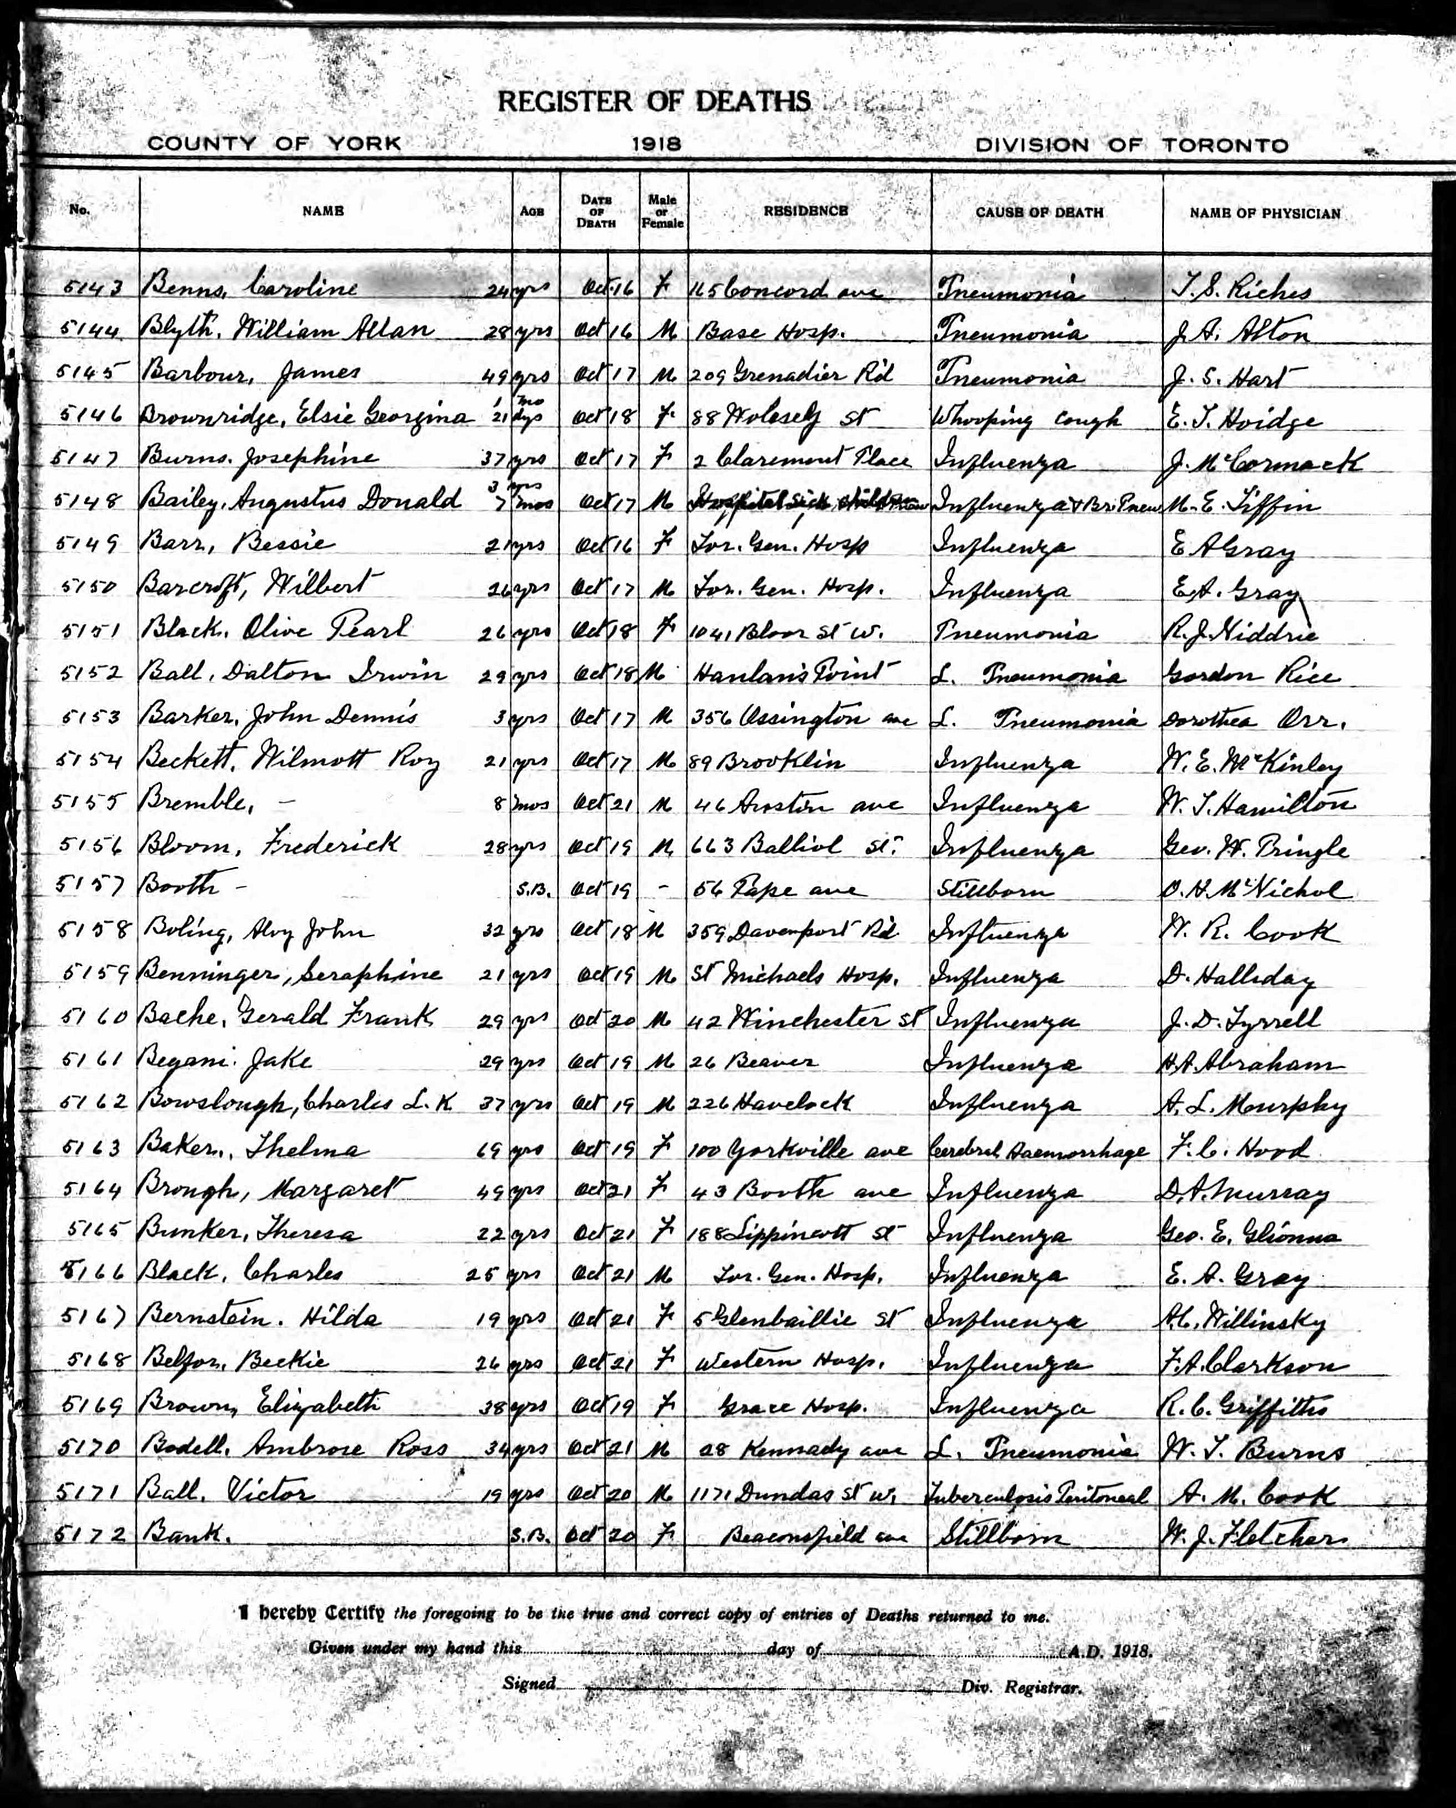 REGISTER OF DEATHS
COUNTY OF YORK 1918 DIVISION OF TORONTO
No. NAME AGE DATE OF DEATH Male or Female RESIDENCE CAUSE OF DEATH NAME OF PHYSICIAN
5143 Benns, Caroline 24 yrs Oct 16 F 165 Concord ave Pneumonia T. S. Riches
5144 Blyth, William Allan 28 yrs Oct 16 M Base Hosp. Pneumonia J. A. Alton
5145 Barbour, James 49 yrs Oct 17 M 209 Grenadier Rd Pneumonia J. S. Hart
5146 Brownridge, Elsie Georgina 1 mo 21 dys Oct 18 F 88 Wolsely St Whooping cough E. T. Hoidge
5147 Burns, Josephine 37 yrs Oct 17 F 2 Claremont Place Influenza J. McCormack
5148 Bailey, Augustus Donald 3 yrs 7 mos Oct 17 M Hospital Sick Influenza & Br. Pneu M. E. Tiffin
5149 Barr, Bessie 21 yrs Oct 16 F Tor. Gen. Hosp Influenza E A Gray
5150 Barcroft, Wilbert 26 yrs Oct 17 M Tor. Gen. Hosp. Influenza E. A. Gray
5151 Black, Olive Pearl 26 yrs Oct 18 F 1041 Bloor St W. Pneumonia R. J. Niddrie
5152 Ball, Dalton Irwin 29 yrs Oct 18 M Hanlan's Point L. Pneumonia Gordon Rice
5153 Barker, John Dennis 3 yrs Oct 17 M 356 Ossington ave L. Pneumonia Dorothea Orr.
5154 Beckett, Wilmott Roy 21 yrs Oct 17 M 89 Brooklin Influenza W. E. McKinley
5155 Bremble, - 8 mos Oct 21 M 46 ave Influenza W. T. Hamilton
5156 Bloom, Frederick 28 yrs Oct 19 M 663 Balliol St. Influenza Geo. W. Pringle
5157 Booth - S.B. Oct 19 - 56 Pape ave Stillborn D. H. McNichol
5158 Boling, Aloy John 32 yrs Oct 18 M 359 Davenport Rd Influenza W. R. Cook
5159 Benninger, Seraphine 21 yrs Oct 19 M St Michaels Hosp. Influenza D. Halliday
5160 Bache, Gerald Frank 29 yrs Oct 20 M 42 Winchester St Influenza J. D. Tyrrell
5161 Begani. Jake 29 yrs Oct 19 M 26 Beaver Influenza H. A. Abraham
5162 Bowslough, Charles L. K 37 yrs Oct 19 M 226 Havelock Influenza A. L. Murphy
5163 Baker, Thelma 69 yrs Oct 19 F 100 Yorkville ave Cerebral Haemorrhage F. C. Hood
5164 Brough, Margaret 49 yrs Oct 21 F 43 Booth ave Influenza D. A. Murray
5165 Bunker, Theresa 22 yrs Oct 21 F 188 Lippincott St Influenza Geo. E. Glionna
5166 Black, Charles 25 yrs Oct 21 M Tor. Gen. Hosp. Influenza E. A. Gray
5167 Bernstein. Hilda 19 yrs Oct 21 F 5 Glenbaillie St Influenza A. C. Willinsky
5168 Belfor, Beckie 26 yrs Oct 21 F Western Hosp. Influenza F. A. Clarkson
5169 Brown, Elizabeth 38 yrs Oct 19 F Grace Hosp. Influenza R. C. Griffiths
5170 Bodell, Ambrose Ross 34 yrs Oct 21 M 28 Kennady ave L. Pneumonia W. T. Burns
5171 Ball, Victor 19 yrs Oct 20 M 1171 Dundas St W. Tuberculosis Peritoneal A. M. Cook
5172 Bank. S.B. Oct 20 F Beaconsfield ave Stillborn W. J. Fletcher
I hereby Certify the foregoing to be the true and correct copy of entries of Deaths returned to me.
Given under my hand this day of A.D. 1918.
Signed Div. Registrar.